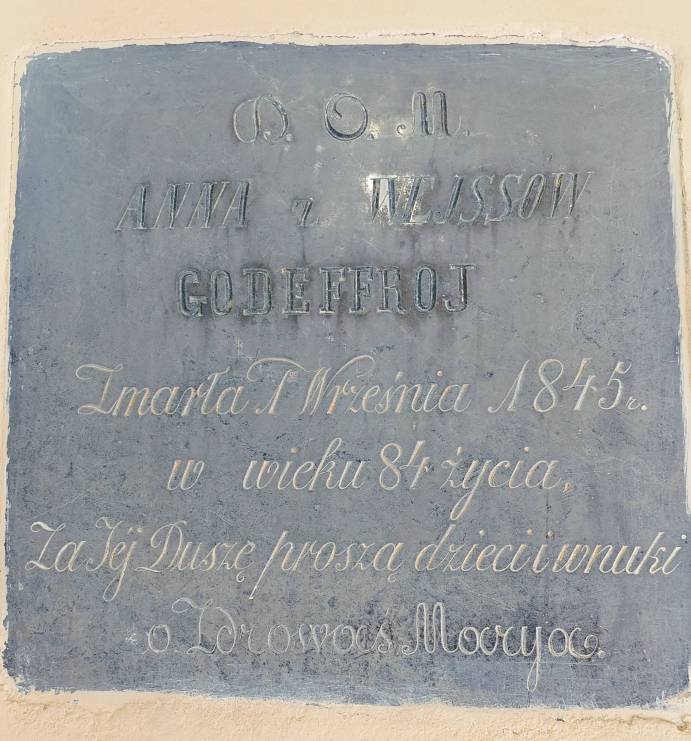 D. O. M.
ANNA z WEJSSÓW
GODEFFROJ
Zmarła 1 Września 1845 r.
w wieku 84 życia,
Za Jéj Duszę proszą dzieci i wnuki
o Zdrowaś Marya.